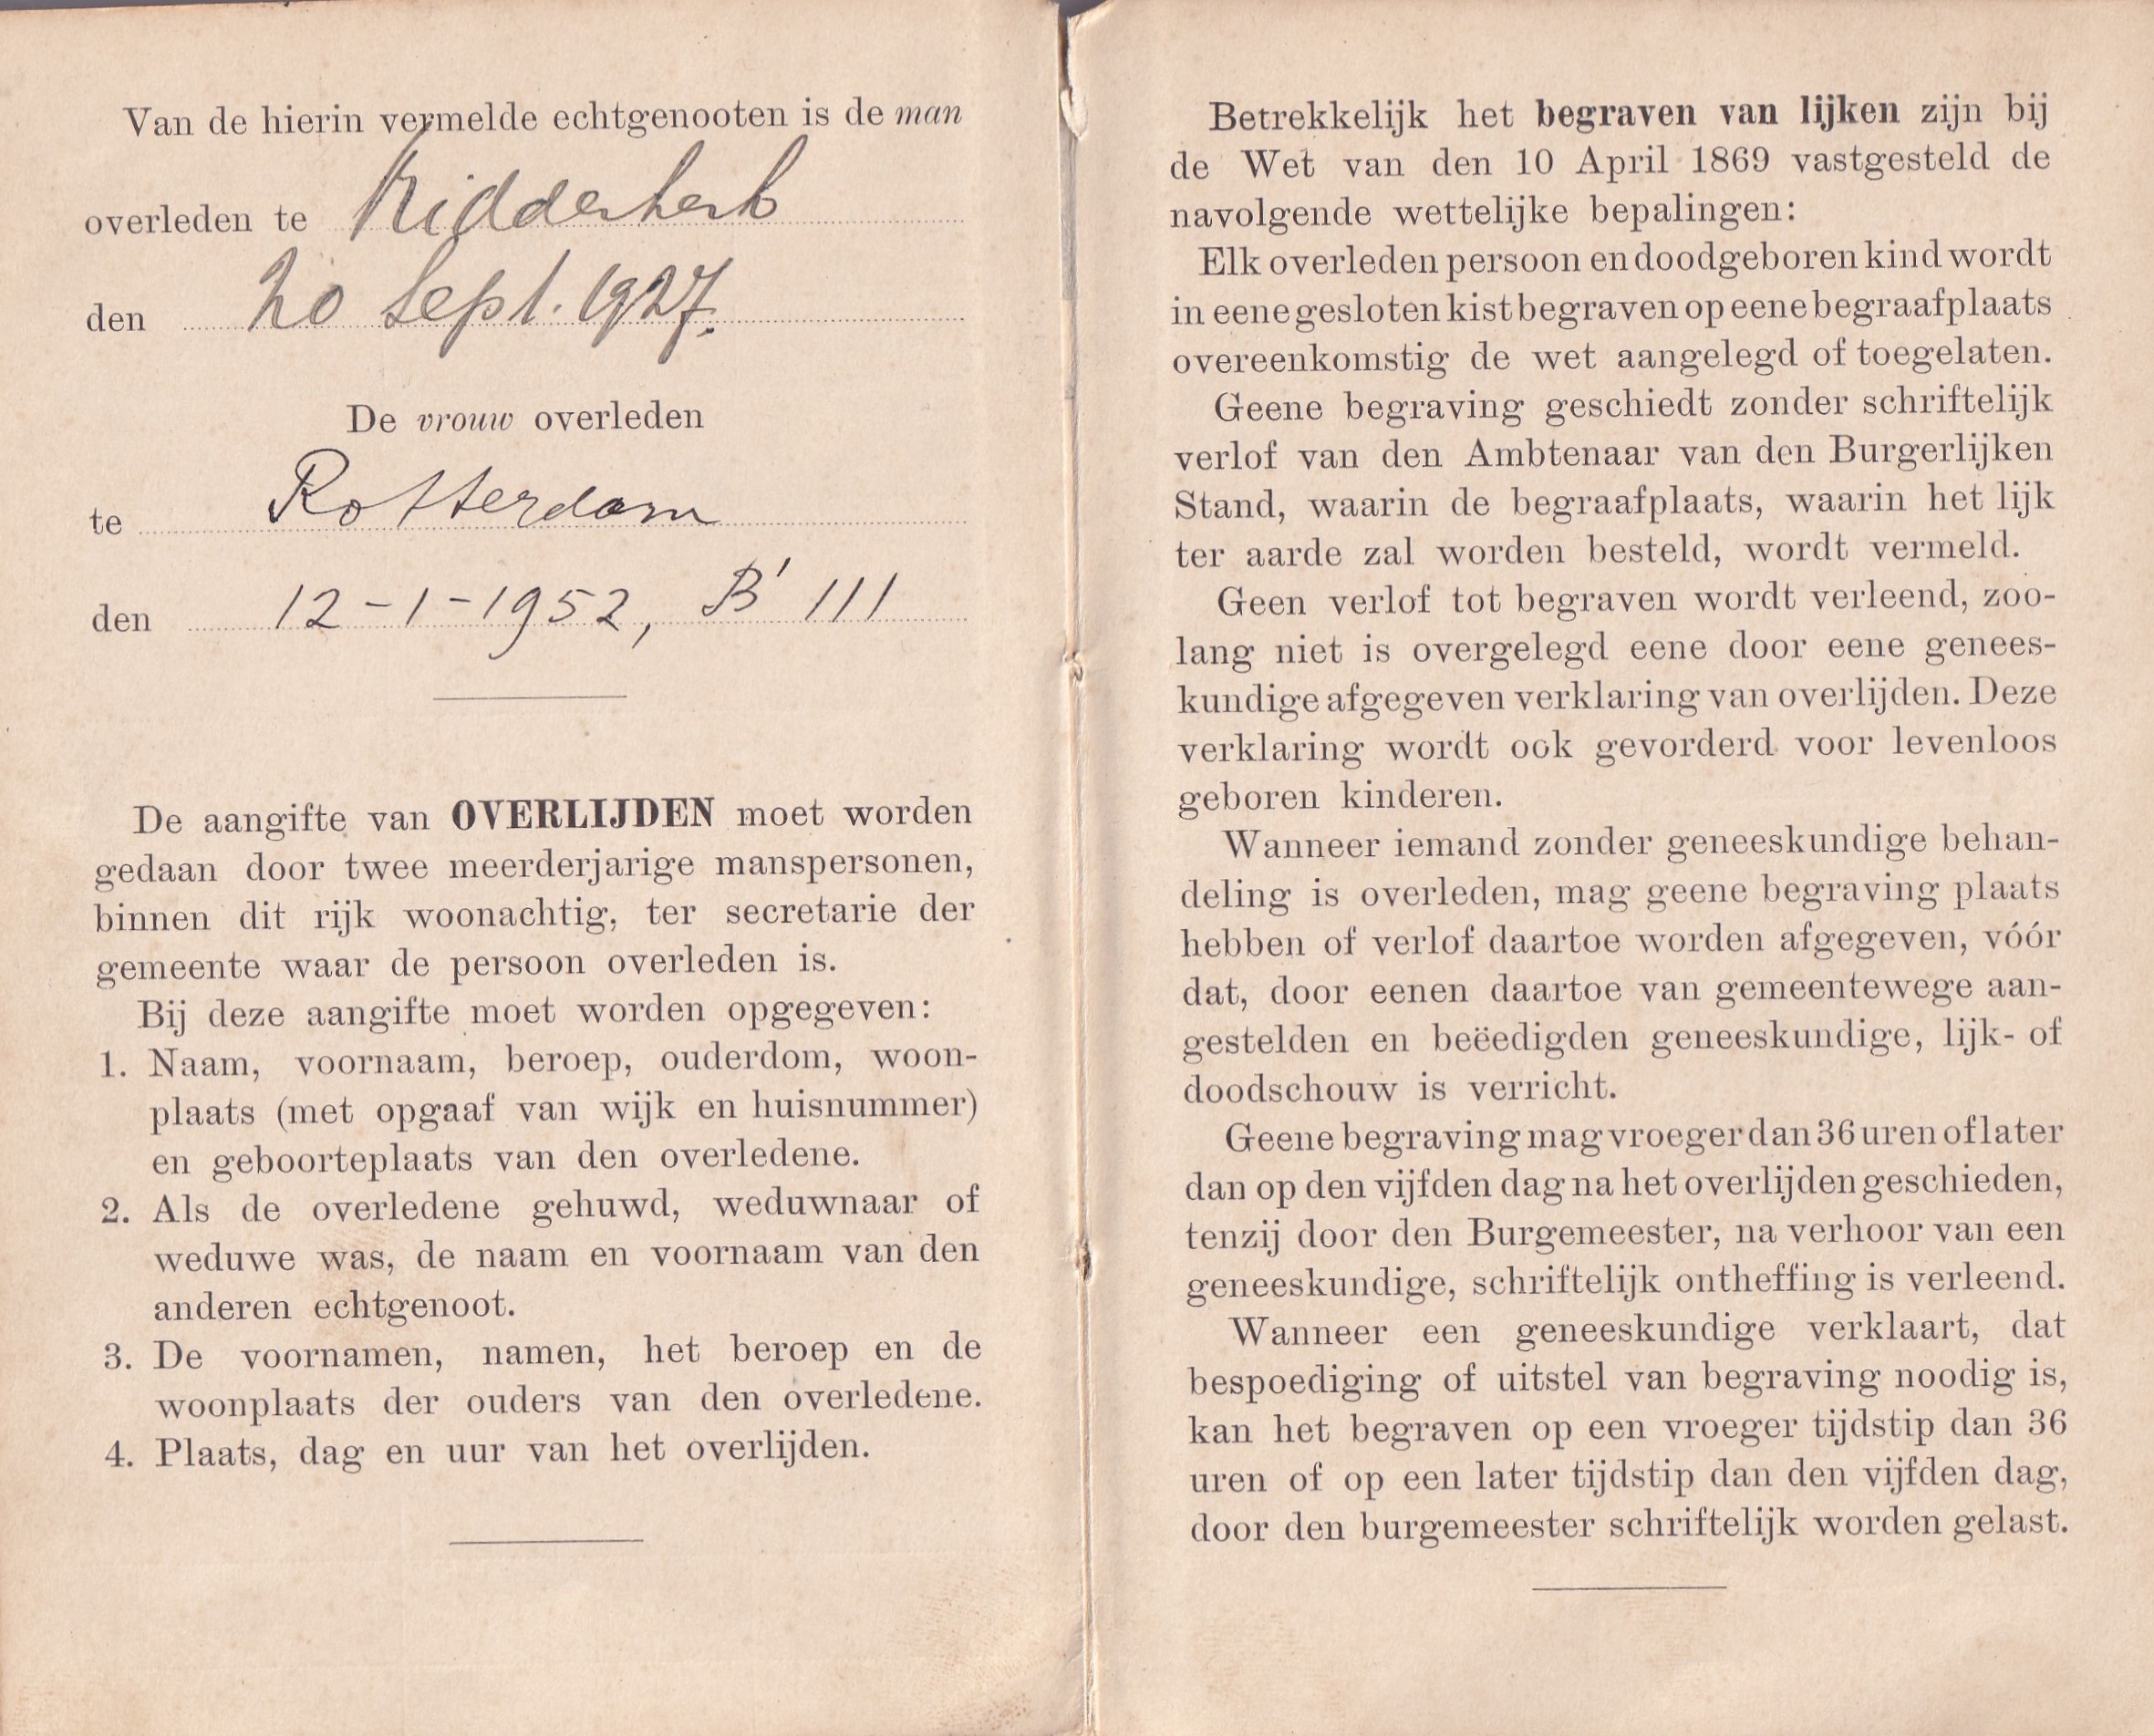 Van de hierin vermelde echtgenooten is de man
overleden te Ridderkerk
den 20 Sept. 1927.
De vrouw overleden
te Rotterdam
den 12-1-1952, B' 111
De aangifte van OVERLIJDEN moet worden
gedaan door twee meerderjarige manspersonen,
binnen dit rijk woonachtig, ter secretarie der
gemeente waar de persoon overleden is.
Bij deze aangifte moet worden opgegeven:
1. Naam, voornaam, beroep, ouderdom, woon-
plaats (met opgaaf van wijk en huisnummer)
en geboorteplaats van den overledene.
2. Als de overledene gehuwd, weduwnaar of
weduwe was, de naam en voornaam van den
anderen echtgenoot.
3. De voornamen, namen, het beroep en de
woonplaats der ouders van den overledene.
4. Plaats, dag en uur van het overlijden.
Betrekkelijk het begraven van lijken zijn bij
de Wet van den 10 April 1869 vastgesteld de
navolgende wettelijke bepalingen:
Elk overleden persoon en doodgeboren kind wordt
in eene gesloten kist begraven op eene begraafplaats
overeenkomstig de wet aangelegd of toegelaten.
Geene begraving geschiedt zonder schriftelijk
verlof van den Ambtenaar van den Burgerlijken
Stand, waarin de begraafplaats, waarin het lijk
ter aarde zal worden besteld, wordt vermeld.
Geen verlof tot begraven wordt verleend, zoo-
lang niet is overgelegd eene door eene genees-
kundige afgegeven verklaring van overlijden. Deze
verklaring wordt ook gevorderd voor levenloos
geboren kinderen.
Wanneer iemand zonder geneeskundige behan-
deling is overleden, mag geene begraving plaats
hebben of verlof daartoe worden afgegeven, vóór
dat, door eenen daartoe van gemeentewege aan-
gestelden en beëedigden geneeskundige, lijk- of
doodschouw is verricht.
Geene begraving mag vroeger dan 36 uren of later
dan op den vijfden dag na het overlijden geschieden,
tenzij door den Burgemeester, na verhoor van een
geneeskundige, schriftelijk ontheffing is verleend.
Wanneer een geneeskundige verklaart, dat
bespoediging of uitstel van begraving noodig is,
kan het begraven op een vroeger tijdstip dan 36
uren of op een later tijdstip dan den vijfden dag,
door den burgemeester schriftelijk worden gelast.